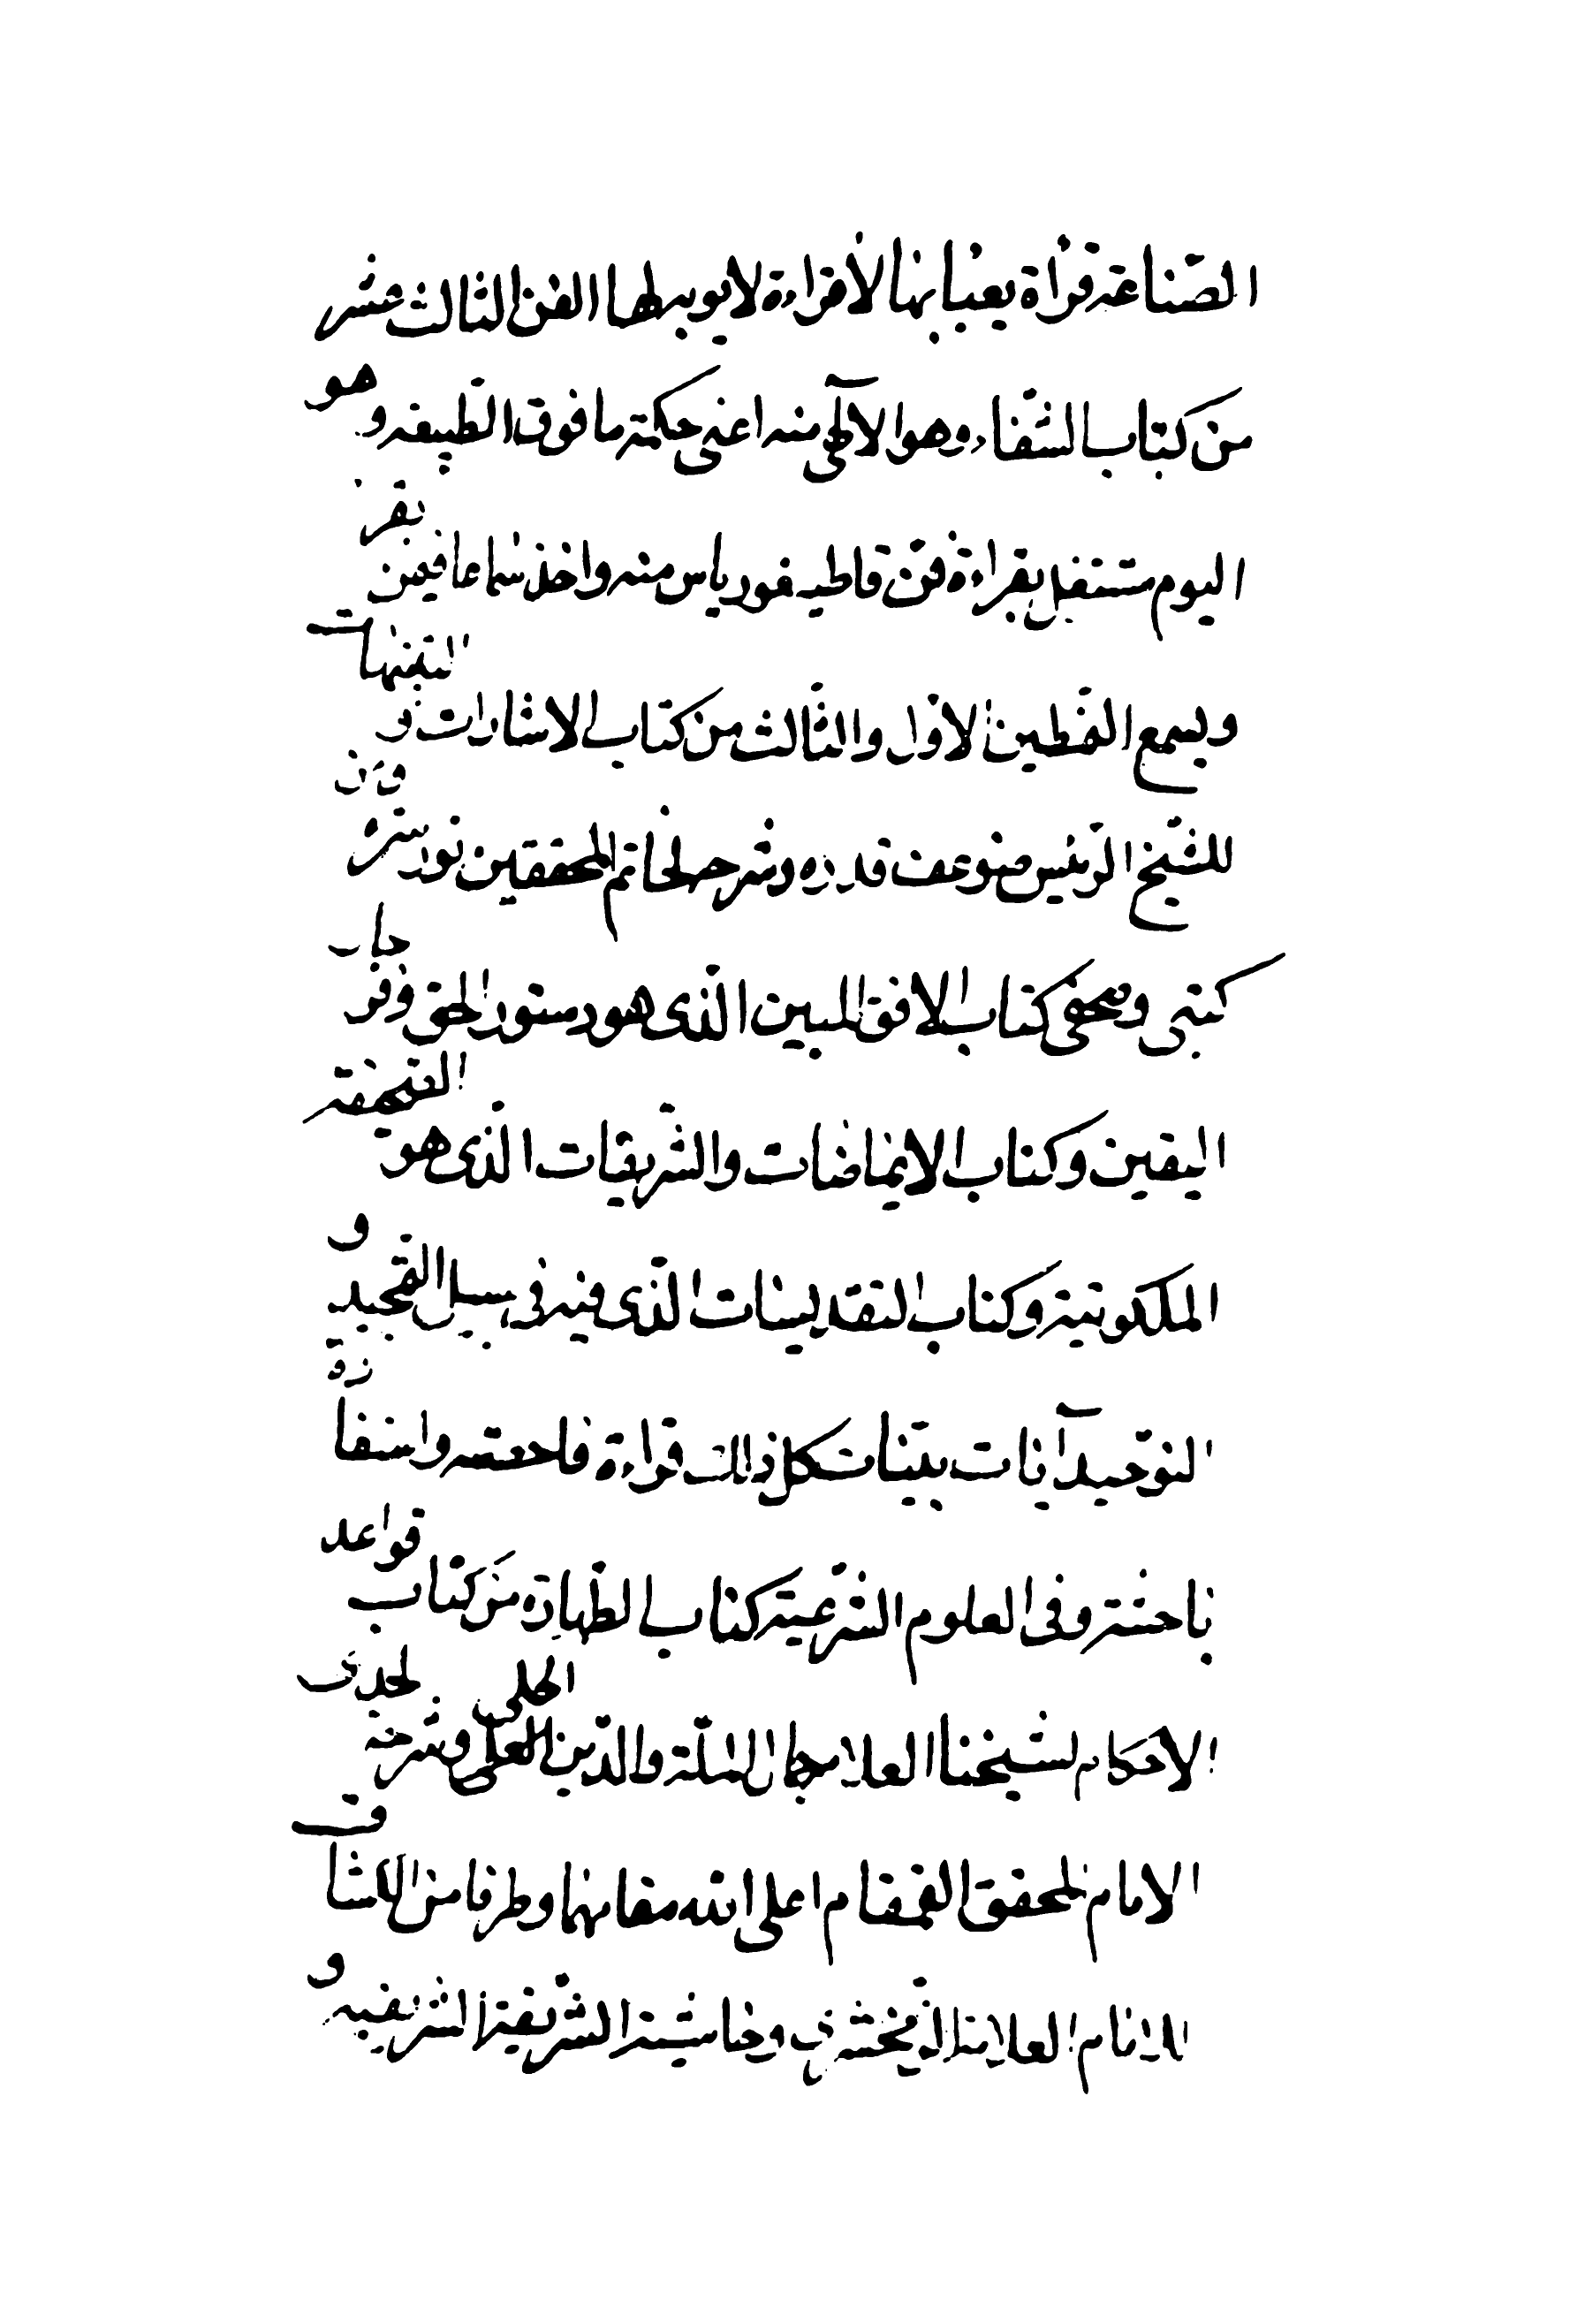 الصّناعة قرأة يعبأ بها لا قراءة لا يوبه لها الفن الثالث عشر
من كتاب الشّفاء وهو الآلهى منه اعنى حكمة ما فوق الطّبيعة وهو
اليوم مشتغل بقراءة فنّ قاطيغورياس منه واخذ سماعا فيمن يقرأ
ويسمع النّمطين الاوّل والثّالث من كتاب الاشارات والتّنبيهات
للشّيخ الرّئيس ضوعف قدره وشرحه لخاتم المحققين نور سرّه ومن
كتبى وصحفى كتاب الافق المبين الذّى هو دستور الحق وفرجار
اليقين وكتاب الايماضات والتّشريقات الذّى هو الصّحيفة
الملكوتية وكتاب التقديسات الذّى فيه فى سبيل التّمجيد و
التوحيد آيات بيّنات كل ذلك قراءة فاحصة واستفادة
باحثة وفى العلوم الشّرعيّة كتاب الطّهارة من كتاب قواعد
الاحكام لشيخنا العلامة جمال الملّة والدّين الحلى وشرحه لجدى
الامام المحقق القمقام اعلى الله مقامهما وطرفا من الكشّاف
للامام العلامة الزّمخشرى وحاشيته الشّريفة الشريفية و